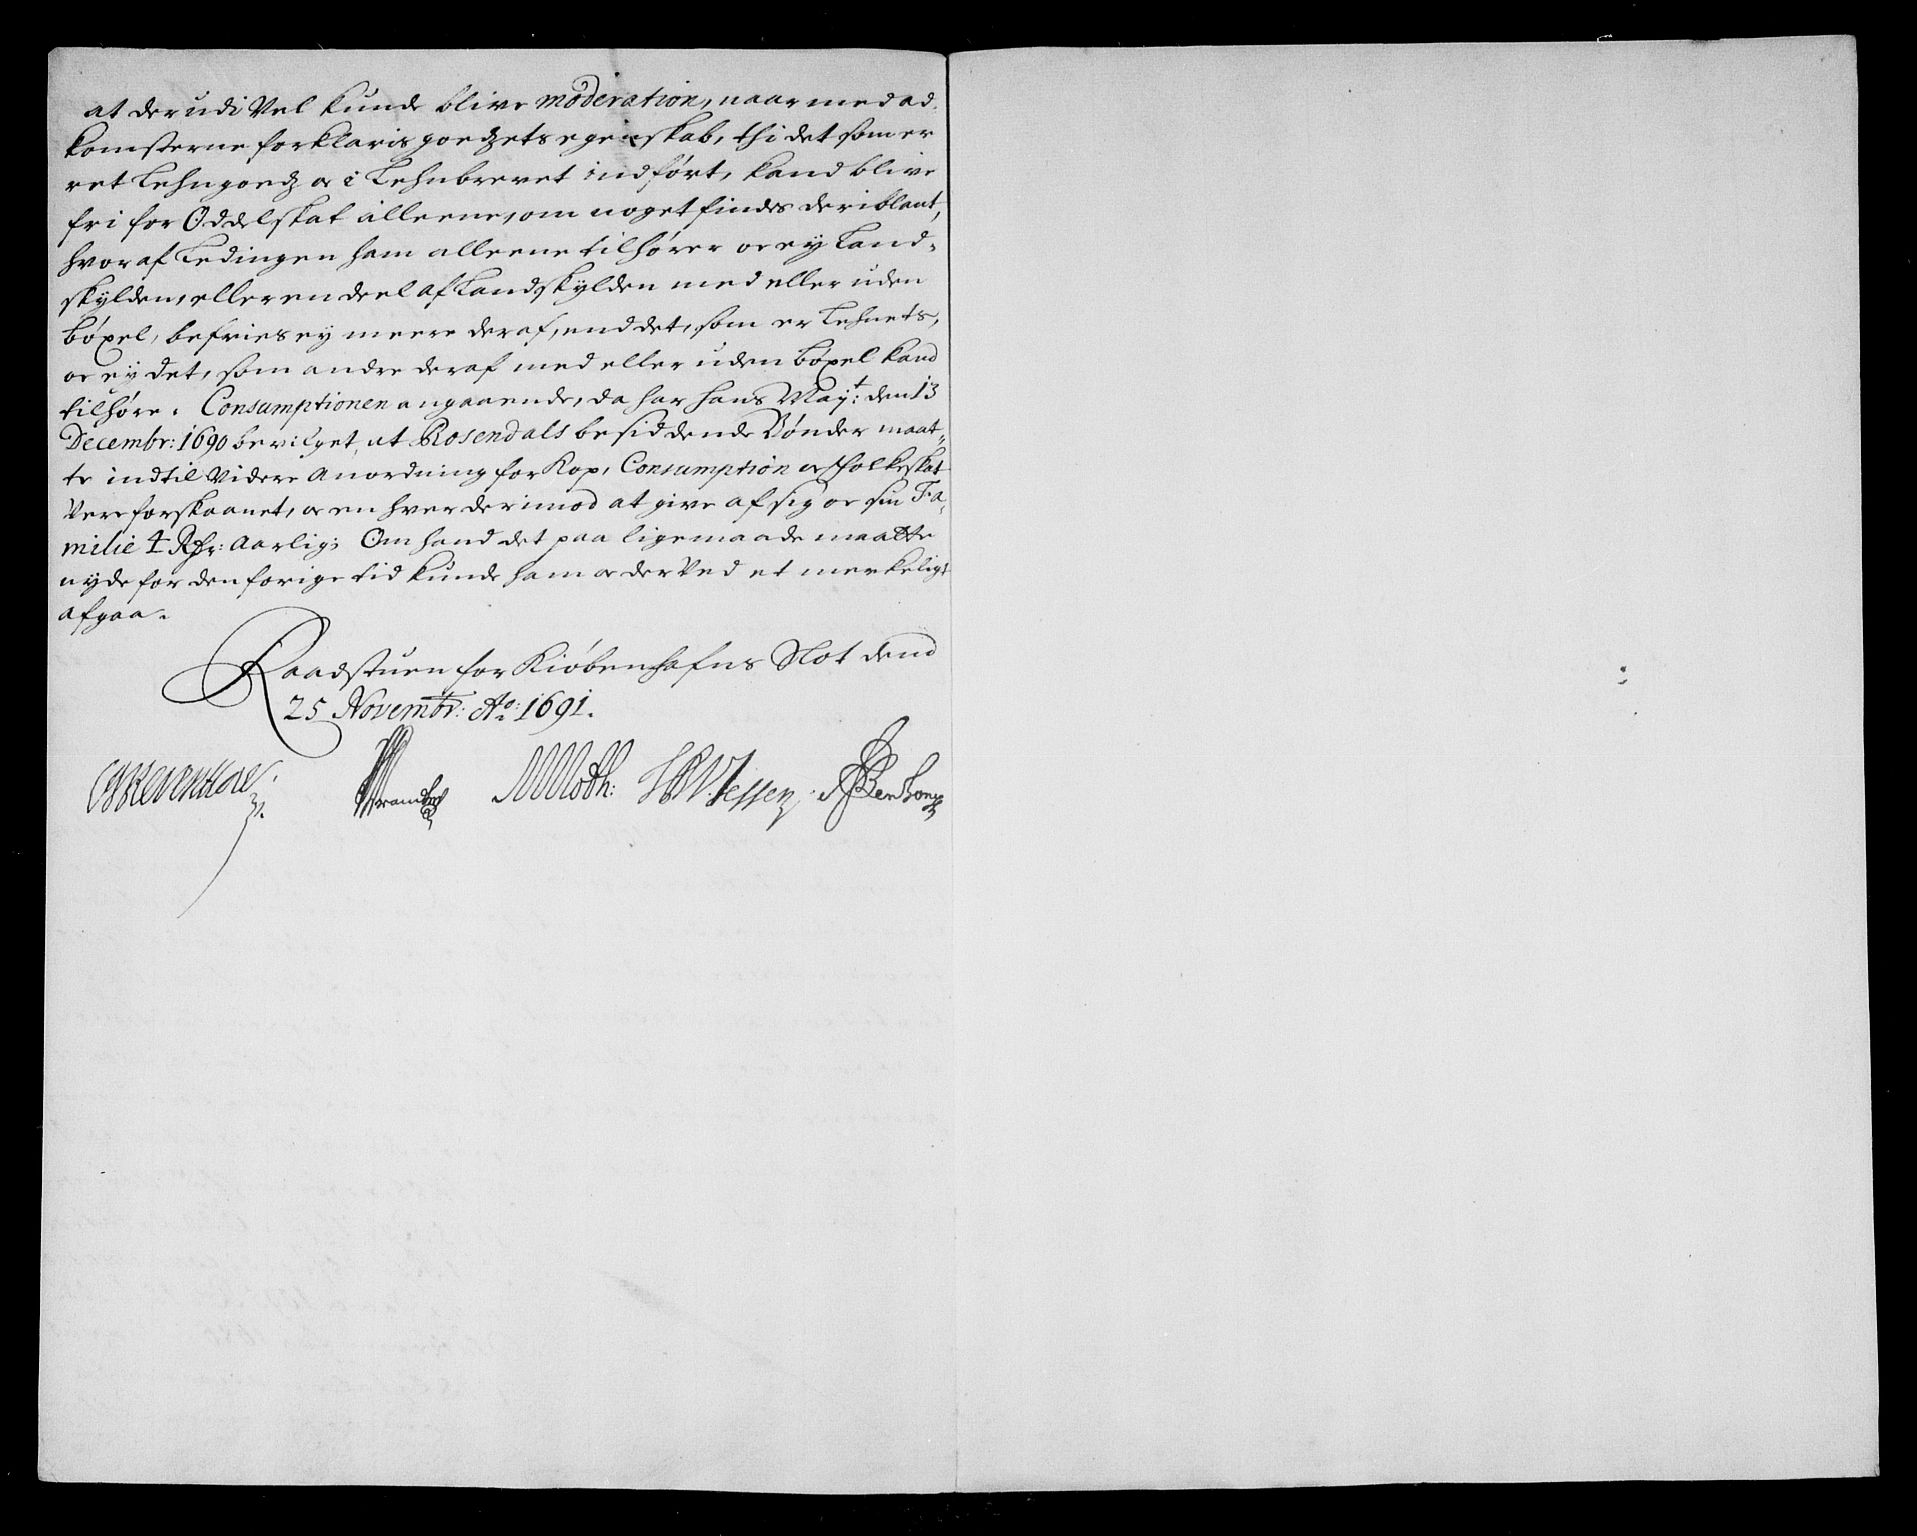 at derudi Vel kunde blive moderation, naar med ad-
komsterne forklaris goedzets egenskab, thi det som er
ret Lehngoedz oc i Lehnbrevet indført, kand blive
fri for Oddelskat alleene, om noget findes deriblant,
hvoraf Ledingen ham alleene tilhører oc ey Land-
skylden, eller en deel af Landskylden med eller uden
böxel, befries ey meere deraf, end det, som er Lehnets,
oc ey det, som andre deraf med eller uden böxel kand
tilhøre. Consumptionen angaaende, da har hans May:t den 13
Decembr: 1690 bevilget, at Rosendals besiddende Bønder maat-
te indtil Videre Anordning for Kop, Consumption oc Folkeskat
Vere forskaanet, oc en hver derimod at give af sig oc sin Fa-
milie 4 Rdr: Aarlig; Om hand det paa ligemaade maatte
nyde for den forige tid kunde ham oc der Ved et merkeligt
afgaa.
Raadstuen for Kiöbenhafns Slot dend
25 Novembr: Ao: 1691.
CReventlow MMoth: Jessen